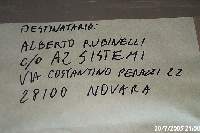 DESTINATARIO:
ALBERTO RUBINELLI
C/O AZ SISTEMI
VIA COSTANTINO PERAZZI 22
28100 NOVARA
20/7/2005 21:00